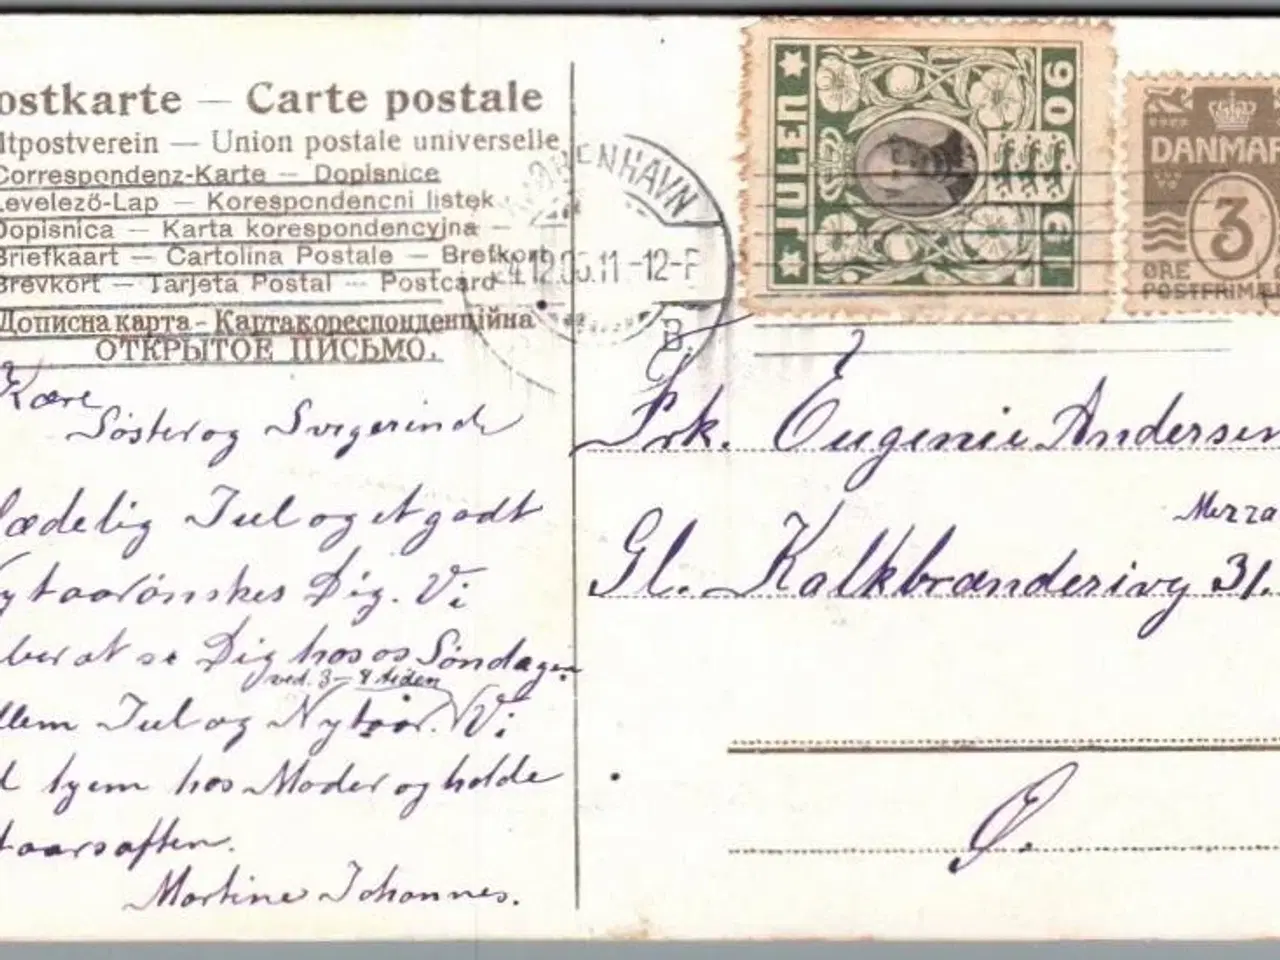 ostkarte — Carte postale
ltpostverein — Union postale universelle
Correspondenz-Karte — Dopisnice
Levelező-Lap — Korespondencni listek
Dopisnica — Karta korespondencyjna —
Briefkaart — Cartolina Postale — Brefkort
Brevkort — Tarjeta Postal — Postcard
Дописна карта - Карта кореспонденційна
ОТКРЫТОЕ ПИСЬМО.
KØBENHAVN
4.12.06.11-12-F
B.
JULEN
1906
DANMAR
3
ØRE
POSTFRIMÆ
Kære
Søster og Svigerinde
lædelig Jul og et godt
ytaar ønskes Dig. Vi
ber at se Dig hos os Søndagen
ved. 3 — 4 tiden
llem Jul og Nytaar. Vi
hjem hos Moder og holde
taarsaften.
Martine Johannes.
Frk. Eugenie Andersen
Mezza
Gl. Kalkbrænderivej 31.
Ø.